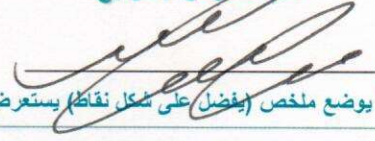 يوضع ملخص (يفضل على شكل نقاط) يستعرض